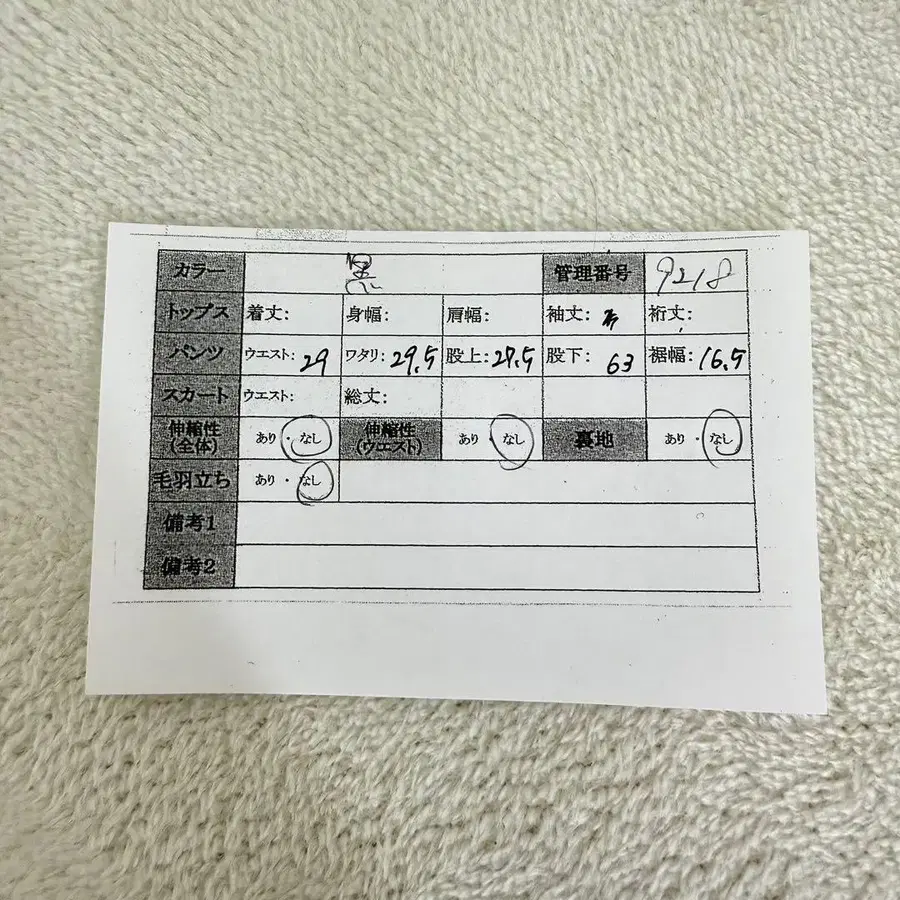 カラー 黒 管理番号 9218
トップス 着丈: 身幅: 肩幅: 袖丈: 裄丈:
パンツ ウエスト: 29 ワタリ: 29.5 股上: 27.5 股下: 63 裾幅: 16.5
スカート ウエスト: 総丈:
伸縮性(全体) あり・なし 伸縮性(ウエスト) あり・なし 裏地 あり・なし
毛羽立ち あり・なし
備考1
備考2